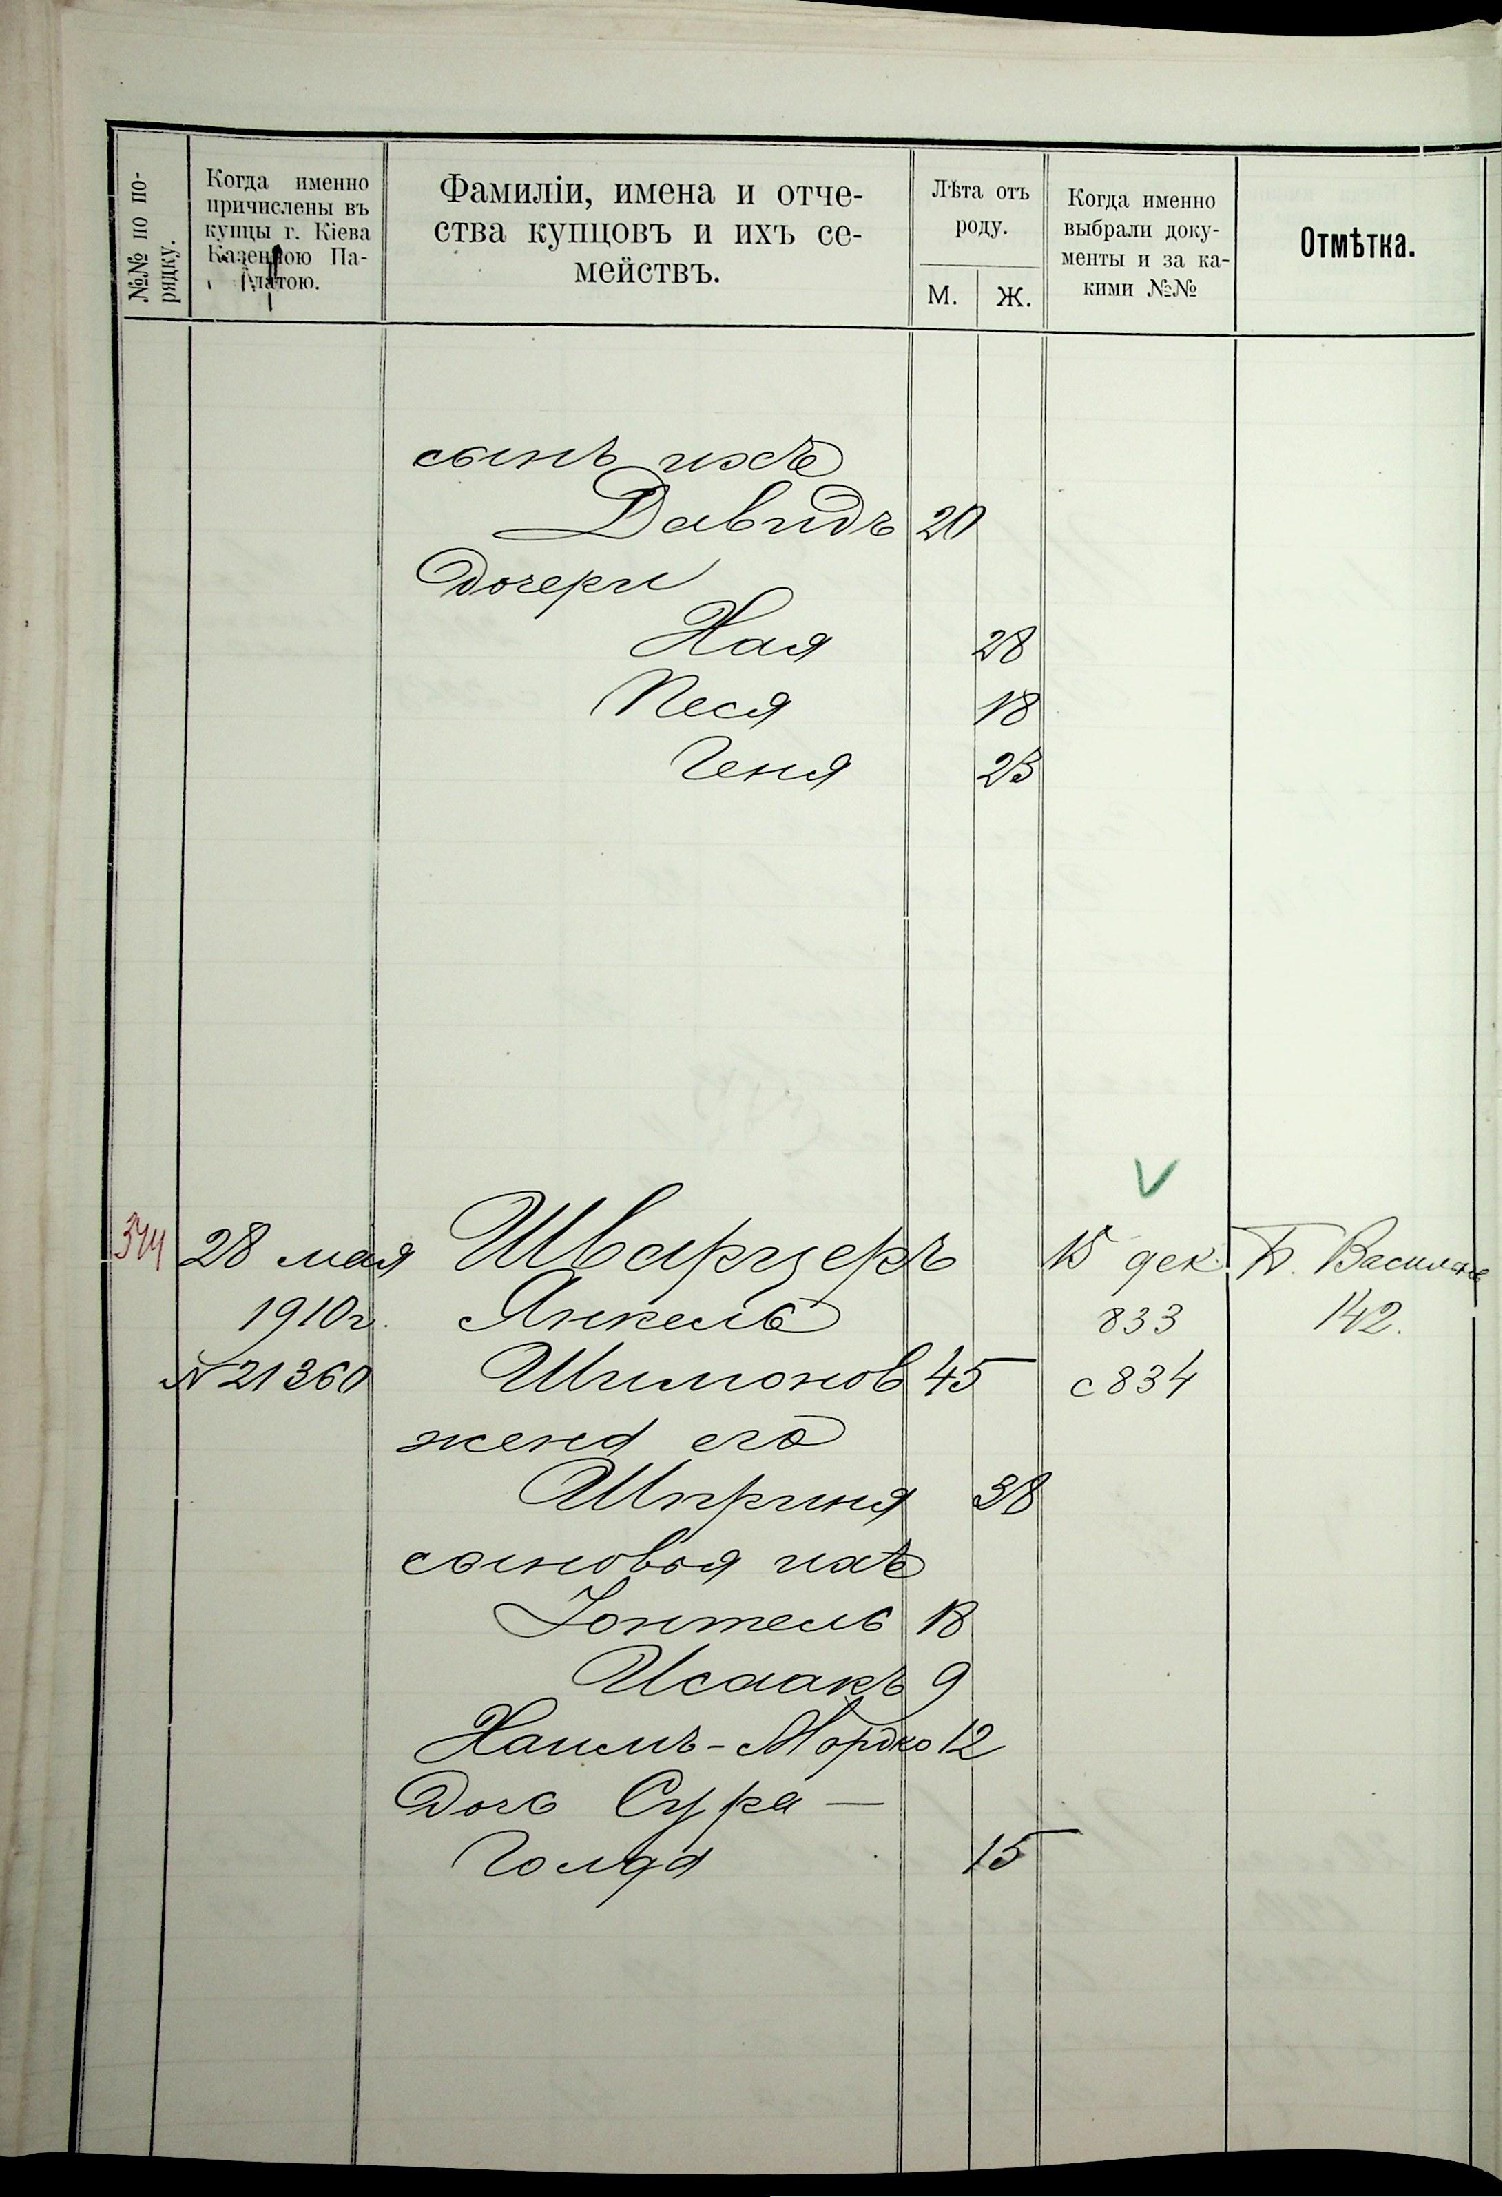 №№ по по-
рядку.
Когда именно
причислены въ
купцы г. Кіева
Казенною Па-
латою.
Фамиліи, имена и отче-
ства купцовъ и ихъ се-
мействъ.
Лѣта отъ
роду.
М. Ж.
Когда именно
выбрали доку-
менты и за ка-
кими №№
Отмѣтка.
сынъ ихъ
Давидъ 20
дочери
Хая 28
Песя 18
Геня 23
V
28 мая Шварцеръ 15 дек. Б. Васильк
1910 г. Янкель 833 142.
№ 21360 Шимонов 45 с 834
жена его
Шприня 38
сыновья ихъ
Іонтель 18
Исаакъ 9
Хаимъ-Мордко 12
дочь Сура —
Голда 15